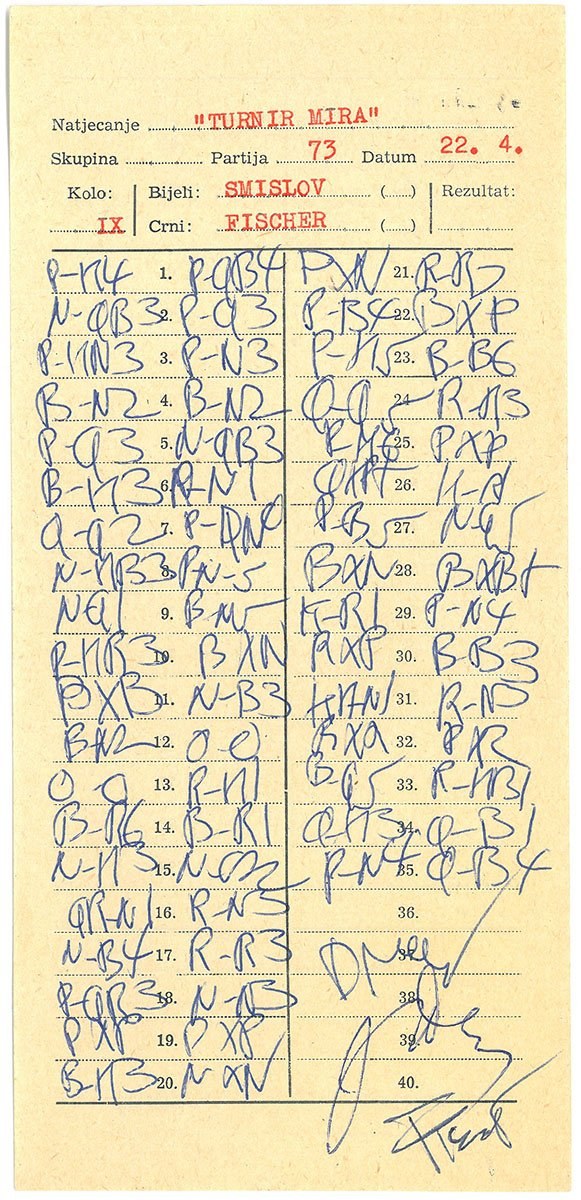 Natjecanje "TURNIR MIRA"
Skupina Partija 73 Datum 22. 4.
Kolo: Bijeli: SMISLOV (.....) Rezultat:
IX Crni: FISCHER (.....)
P-K4 1. P-QB4 PXN 21.
N-QB3 2. P-Q3 P-B4 22. BXP
P-KN3 3. P-N3 P-K5 23. B-B6
B-N2 4. B-N2 24. R-K3
P-Q3 5. N-QB3 25. PXP
B-K3 6. R-N1 26.
Q-Q2 7. P-QN4 P-B5 27. N-Q5
N-KB3 8. PN-5 BXN 28. BXB+
NQ1 9. B-N5 K-R1 29. P-N4
P-KR3 10. BXN RXP 30. B-B3
BXB 11. N-B3 31.
B-N2 12. O-O RXQ 32. PXR
O-O 13. R-K1 B-Q5 33. R-KB1
B-R6 14. B-R1 Q-K3 34. Q-B1
N-K3 15. P-N4 35. Q-B4
QR-N1 16. R-N3 36.
N-B4 17. R-R3 37.
P-QB3 18. 38.
PXP 19. PXP 39.
B-K3 20. NXN 40.